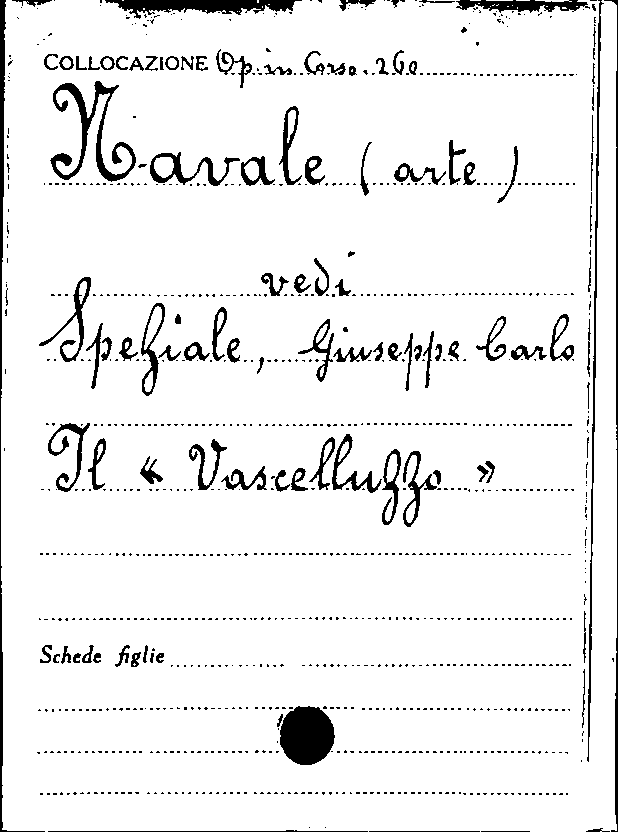 COLLOCAZIONE Op. in Corso. 260
Navale (arte)
vedi
Speziale, Giuseppe Carlo
Il « Vascelluzzo »
Schede figlie